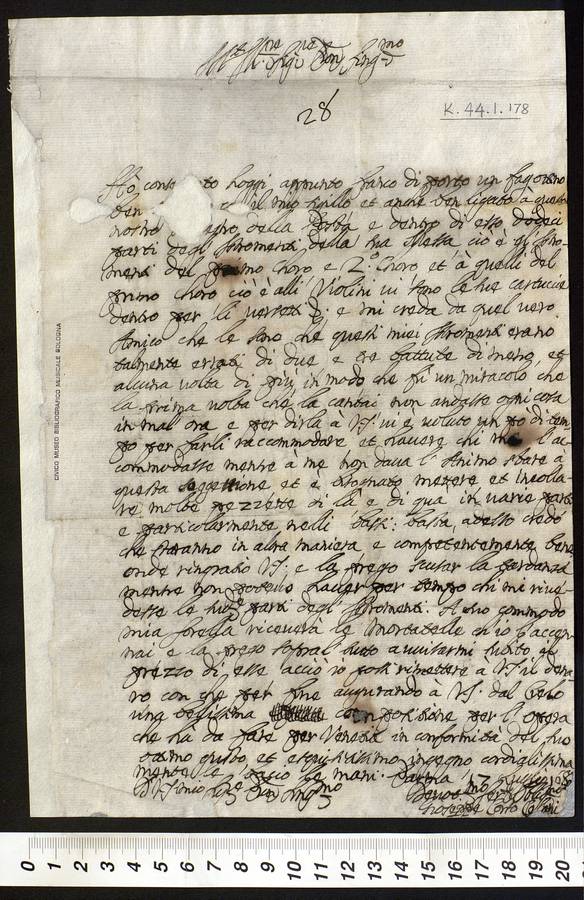 28
K. 44.1.178
Hò to hoggi appunto franco di porto un fagottino
ben il mio sigillo et anche ben ligato à questo
nostro della Posta e dentro di esso dodeci
parti degl' Stromenti della sua Messa ciò è gl' Stro-
menti del primo Choro e 2.º Choro et à quelli del
primo choro ciò è alli Violini vi sono le sue cartuccie
dentro per li versetti e mi creda da quel vero
Amico che le sono che questi miei stromenti erano
talmente errati di due e tre battute di meno, et
alcuna volta di più, in modo che fù un miracolo che
la prima volta che la cantai non andasse ogni cosa
in mal ora e per dirla à V.S. vi è voluto un pò di tem
po per farli raccommodare et trovare chi me l'ac-
commodasse mentre à me non dava l'Animo stare à
questa et è bisognato metere et incolla-
re molte pezzette di là e di quà in varie parti
e particolarmente nelli bassi: basta, adesso credo
che staranno in altra maniera, e competentemente bene
onde ringratio V.S. e la prego scusar la tardanza
mentre non potevo haver per tempo chi mi rive-
desse le sud.e parti degl' Stromenti. A suo commodo
mia sorella riceverà le Mortatelle ch'io l'accen-
nai e la prego sopra tutto avvisarmi subito il
prezzo di esse acciò io possi rimettere à V.S. il dena
ro con che per fine augurando à V.S. dal Cielo
una bellissima compositione per l'opera
che ha da fare per Venetia in conformità del suo
ottimo gusto et esquisitissimo ingegno cordialissima
mente le bacco le mani. Parma 17
CIVICO MUSEO BIBLIOGRAFICO MUSICALE BOLOGNA
0 1 2 3 4 5 6 7 8 9 10 11 12 13 14 15 16 17 18 19 20